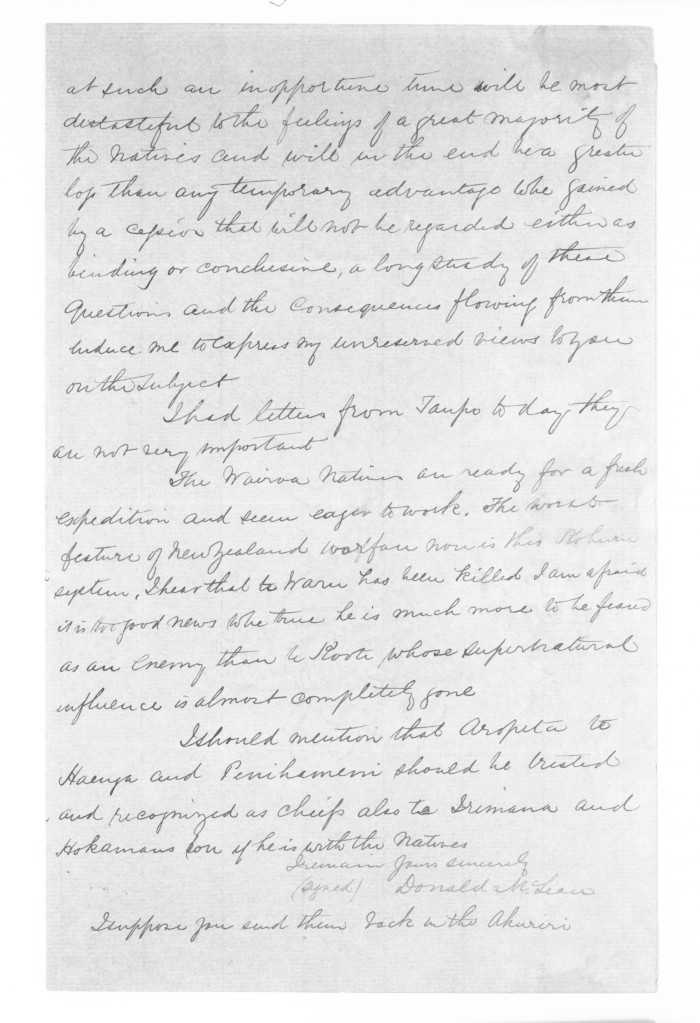 at such an inopportune time will be most
destasteful to the feelings of a great majority of
the Natives and will in the end be a greater
loss than any temporary advantage to be gained
by a cession that will not be regarded either as
binding or conclusive, a long study of these
Questions and the Consequences flowing from them
induce me to express my unreserved views to you
on the subject
I had letters from Taupo to day they
are not very important
The Wairoa Natives are ready for a fresh
expedition and seem eager to work. The worst
feature of New Zealand warfare now is this
system, I hear that te Waru has been killed I am afraid
it is too good news to be true he is much more to be feared
as an Enemy than te Kooti whose supernatural
influence is almost completely gone
I should mention that Aropeta te
Haenga and Penihameni should be trusted
and recognized as Chiefs also te Irimana and
Hokamaus son if he is with the Natives
I remain Yours sincerely
(signed) Donald McLean
I suppose you send them back in the Ahuriri